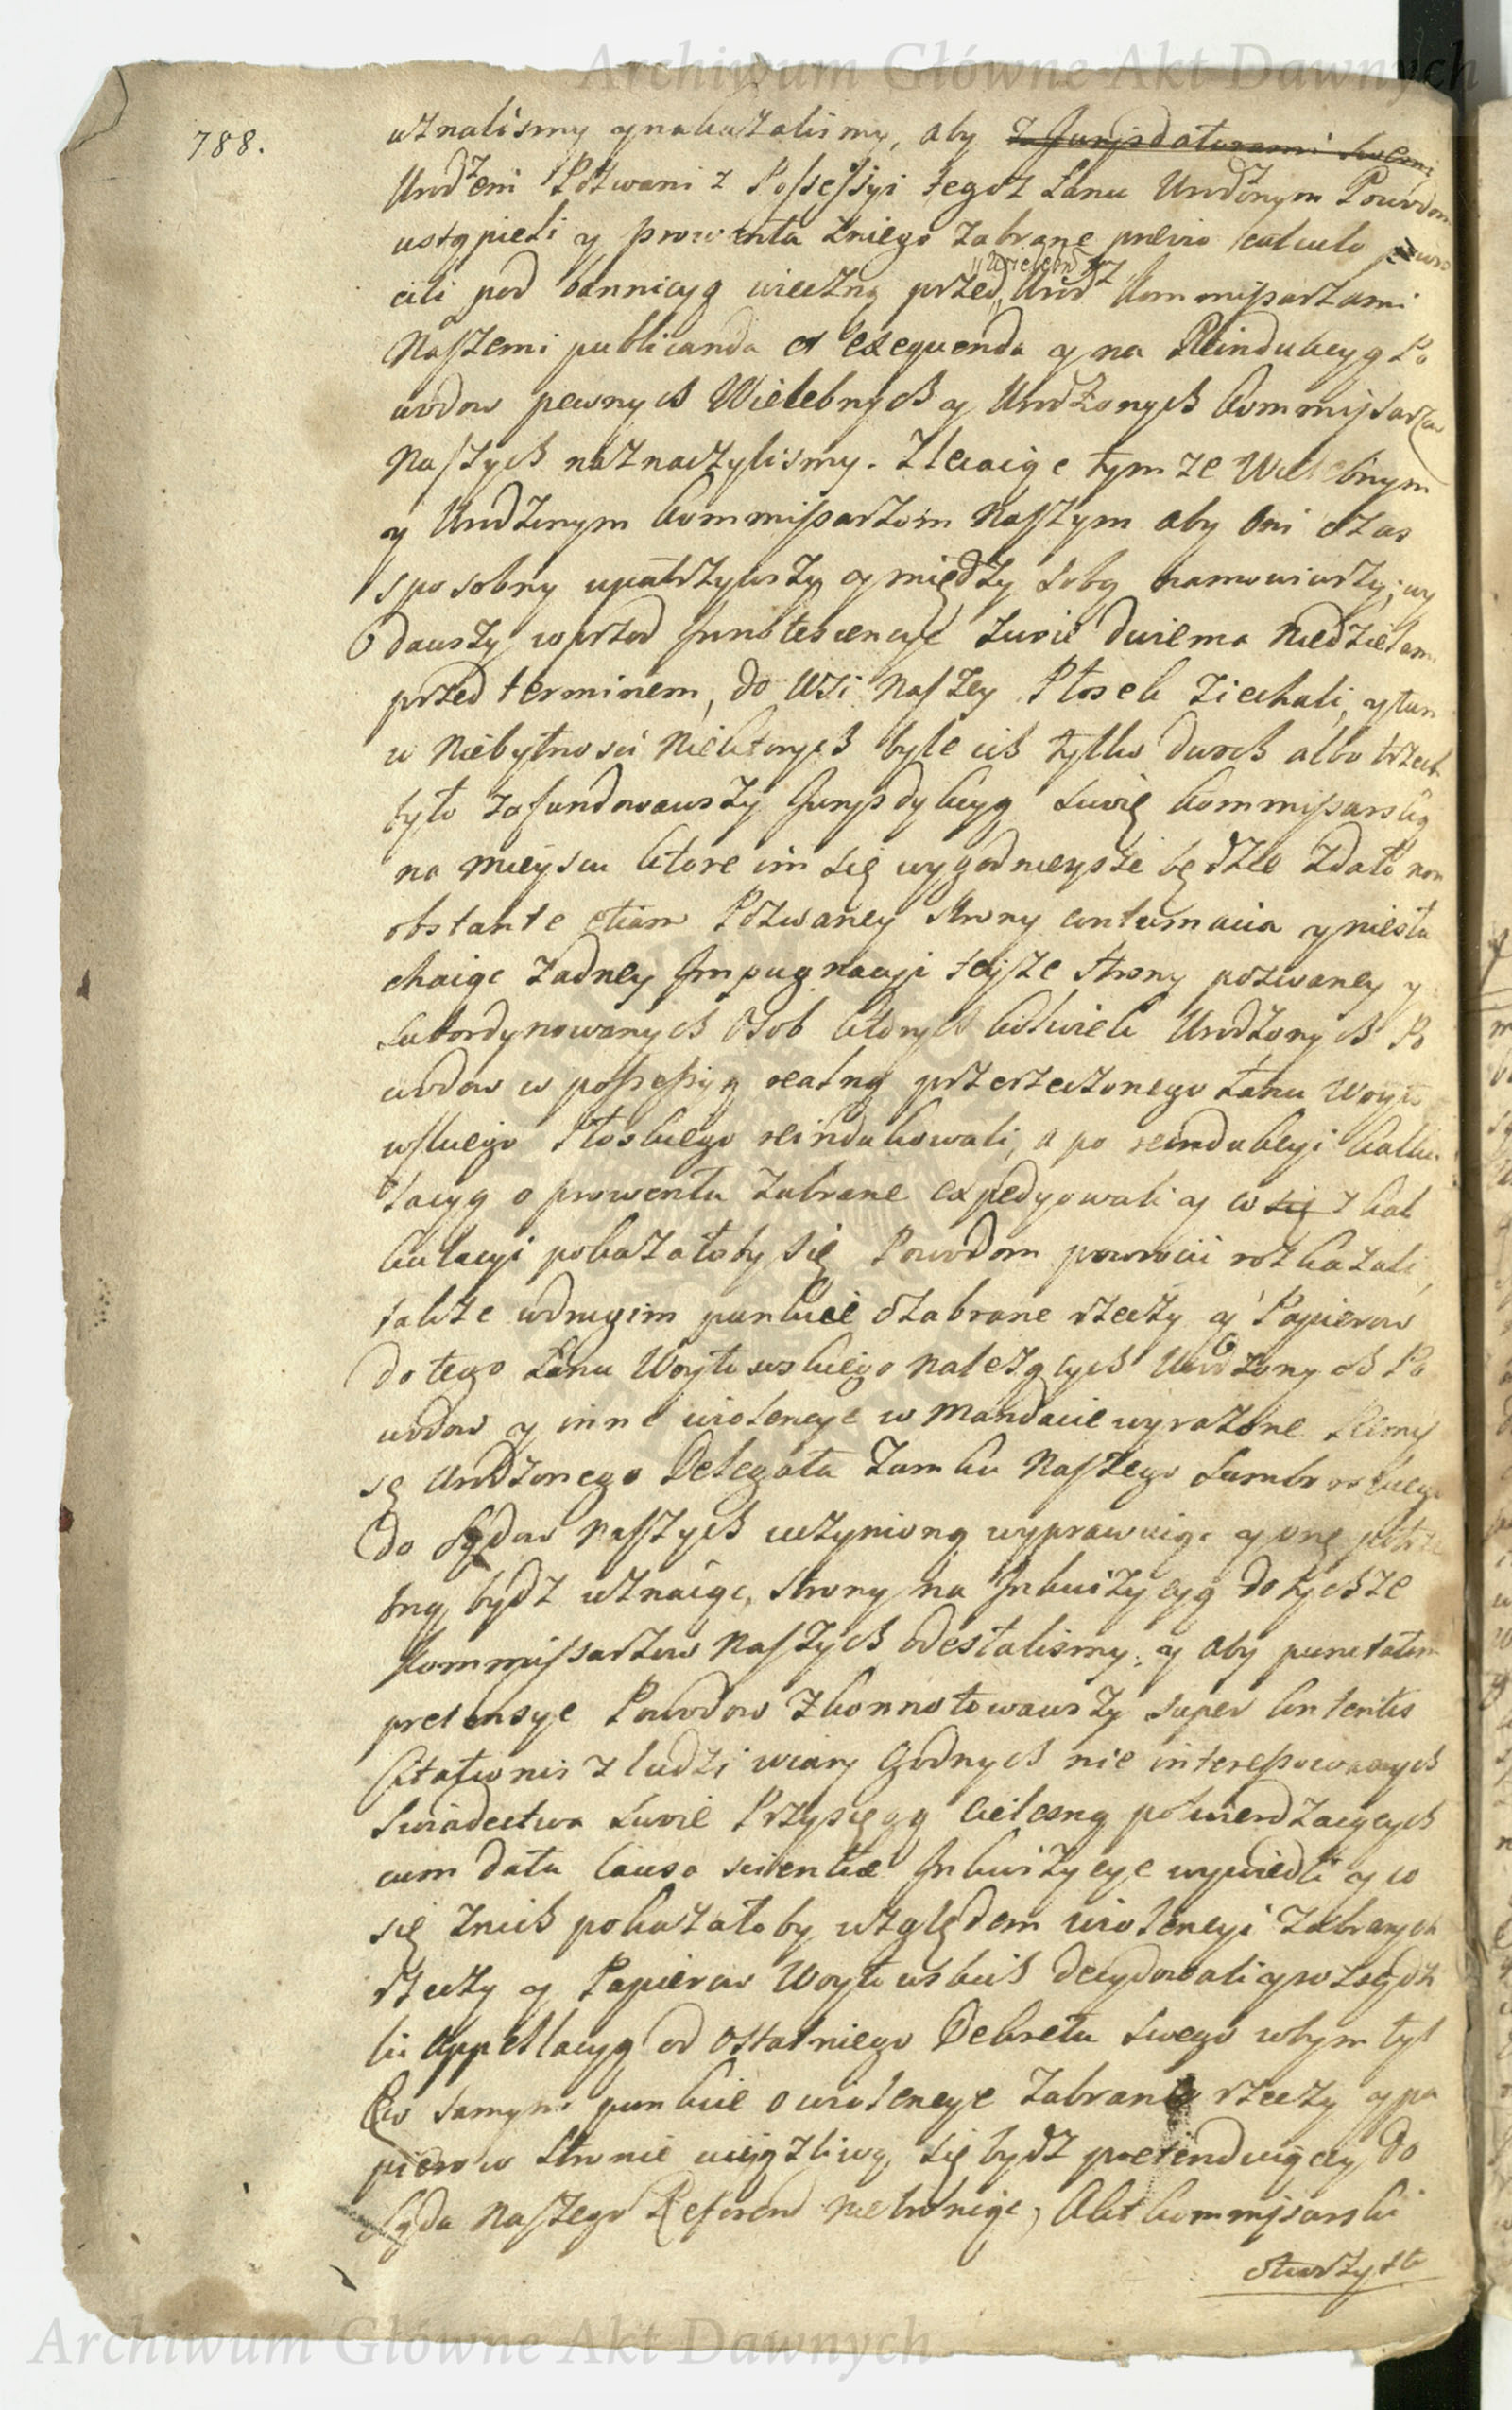 Archiwum Główne Akt Dawnych
788.
uznalismy y nakazalismy, aby z Jurysdatorami swemi
Urodzeni Pozwani z Possessyi tegoz Łanu Urodzonym Powodom
ustąpieli y prowenta zniego zabrane previo calculo powro
cili pod bannicyą wieczną przed "Wielebn Urodz Kommissarzami
Naszemi publicanda et exequenda y na Reindukcyą Po
wodow pewnych Wielebnych y Urodzonych Kommissarzow
Naszych naznaczylismy. Zlecaiąc tymze Wielebnym
y Urodzonym Kommissarzom Naszym aby Oni czas
sposobny upatrzywszy y między sobą namowiwszy, wy
dawszy wprzod Innotescencye swoie dwiema Niedzielami
przed terminem, do Wsi Naszey Płosek ziechali, y tam
w Niebytnosci Niektorych byle ich tylko dwoch albo trzech
było zafundowawszy Jurysdykcyą swoię Kommissarską
na mieyscu ktore im się wygodnieysze będzie zdało non
obstante etiam Pozwaney strony contumacia y niesłu
chaiąc zadney Impugnacyi teyże strony pozwaney y
subordynowanych Osob ktorych kolwiek Urodzonych Po
wodow w possessyą realną przerzeczonego Łanu Woyto
wskiego Płoskiego reindukowali, a po reindukcyi kalku
lacyą o prowenta zabrane expedyowali y co się z kal
kulacyi pokazałoby się Powodom powrocić rozkazali,
także wdrugim punkcie o zabrane rzeczy y Papierow
do tego Łanu Woytowskiego należących Urodzonych Po
wodow y inne wiolencye w Mandacie wyrażone
są Urodzonego Delegata Zamku Naszego Samborskiego
do Sądow Naszych uczynioną wyprawuiąc y onę potrze
bną bydź uznaiąc, strony na Inkwizycyą do tychże
Kommissarzow Naszych odesłalismy, y aby punctatim
pretensye Powodow zkonnotowawszy super contentis
Citationis z ludzi wiary Godnych nie interessowanych
swiadectwa swoie Przysięgą cielesną potwierdzaiących
cum data causa scientiæ Inkwizycye wywiedli y co
się znich pokazałoby względem wiolencyi zabranych
rzeczy y Papierow Woytowskich decydowali y rozsądzi
li Appellacyą od ostatniego Dekretu swego wtym tyl
ko samym punkcie o wiolencye zabrane rzeczy y pa
pierow stronie uciążliwą się bydź pretenduiącey do
Sądu Naszego Referend niebroniąc, Akt Kommissarski
stwarzysto
Archiwum Główne Akt Dawnych